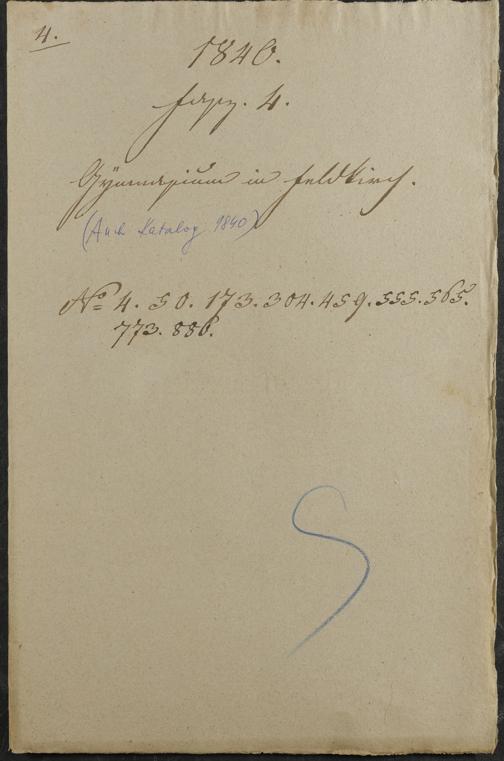 4.
1840.
Fasz. 4.
Gymnasium in Feldkirch.
(Auch Katalog 1840)
No 4. 50. 173. 304. 459. 555. 565.
773. 886.